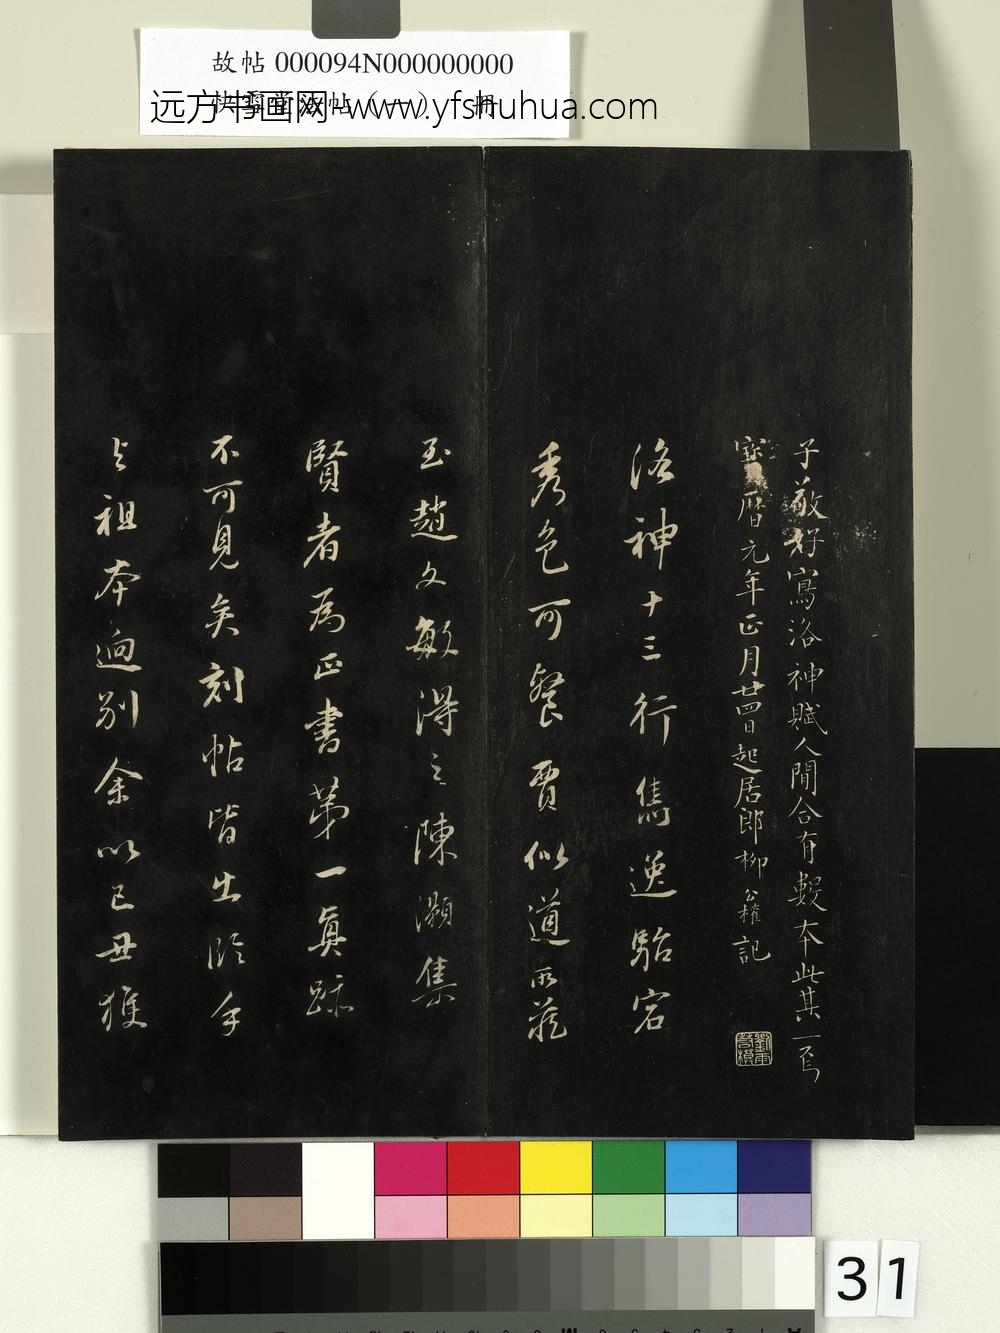 故帖 000094N000000000
快雪堂法帖（一） 冊
远方书画网-www.yfshuhua.com
子敬好寫洛神賦人間合有數本此其一焉
寶曆元年正月廿四日起居郎柳公權記
洛神十三行雋逸駘宕
秀色可餐賈似道所藏
至趙文敏得之陳灝集
賢者為正書第一真跡
不可見矣刻帖皆出臨手
與祖本迥別余以己丑獲
劉雨若模
31